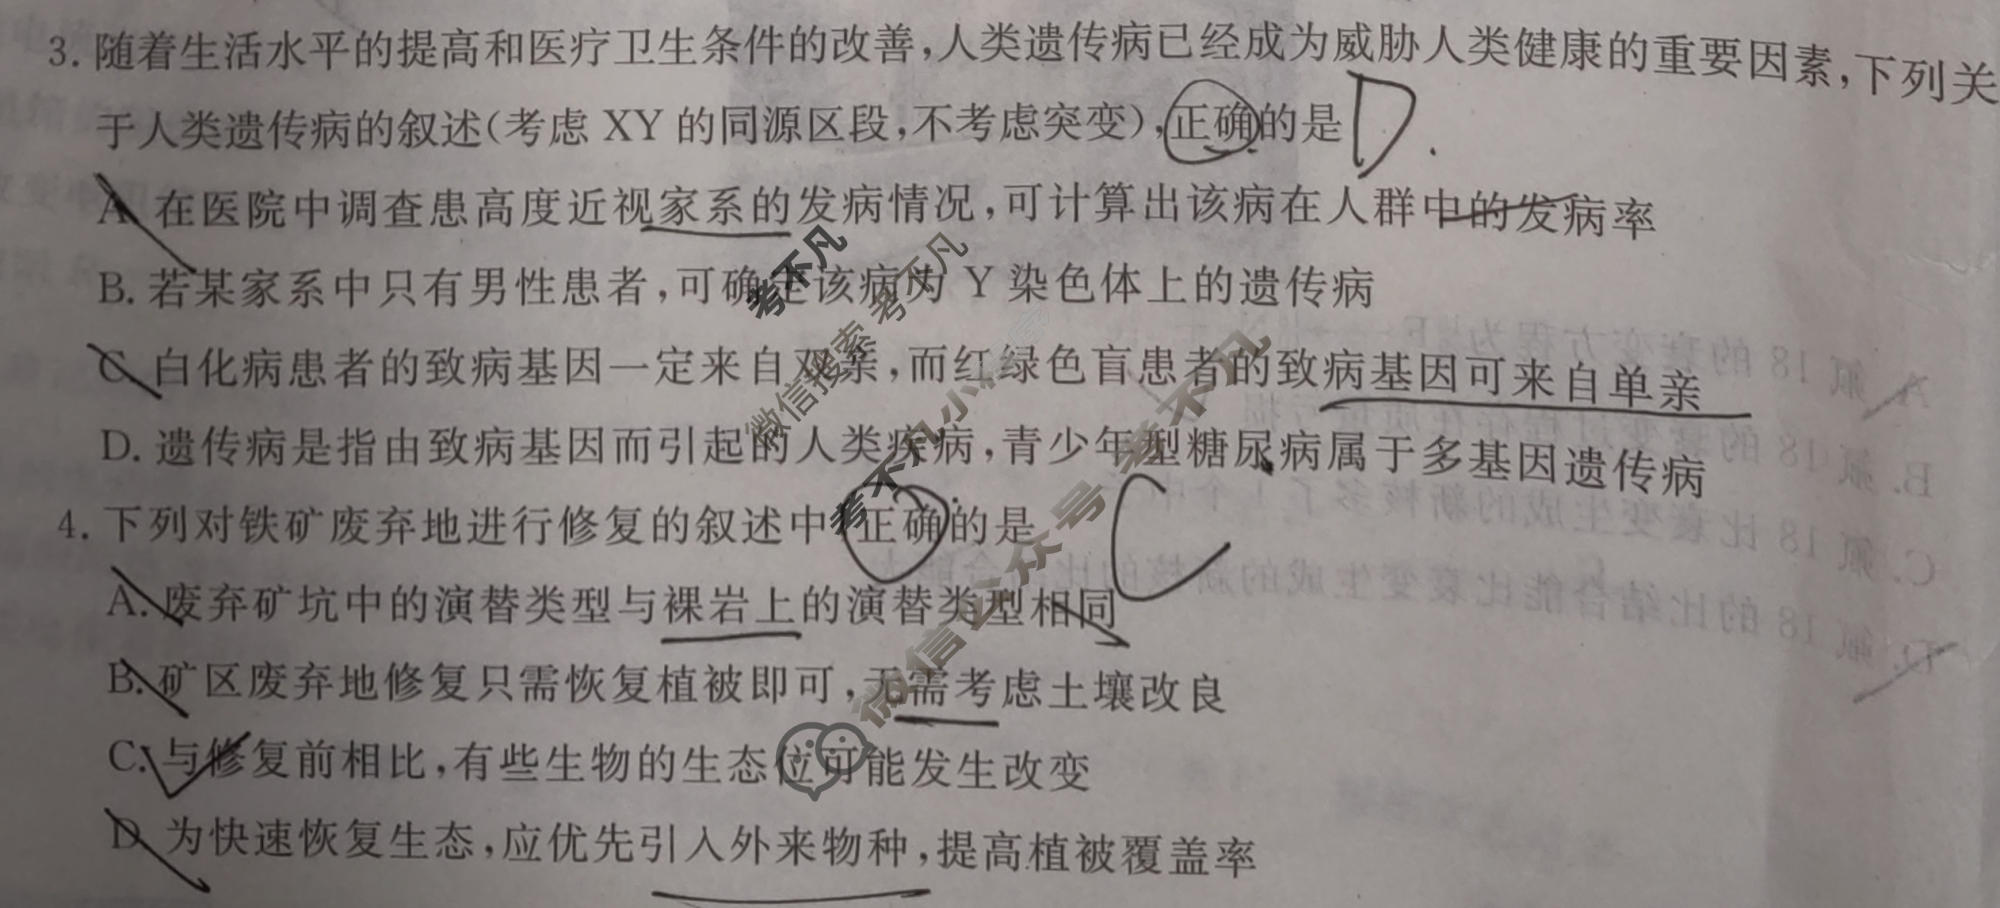 3. 随着生活水平的提高和医疗卫生条件的改善,人类遗传病已经成为威胁人类健康的重要因素,下列关
于人类遗传病的叙述(考虑 XY 的同源区段,不考虑突变),正确的是 D.
A. 在医院中调查患高度近视家系的发病情况,可计算出该病在人群中的发病率
B. 若某家系中只有男性患者,可确定该病为 Y 染色体上的遗传病
C. 白化病患者的致病基因一定来自双亲,而红绿色盲患者的致病基因可来自单亲
D. 遗传病是指由致病基因而引起的人类疾病,青少年型糖尿病属于多基因遗传病
4. 下列对铁矿废弃地进行修复的叙述中,正确的是 C
A. 废弃矿坑中的演替类型与裸岩上的演替类型相同
B. 矿区废弃地修复只需恢复植被即可,无需考虑土壤改良
C. 与修复前相比,有些生物的生态位可能发生改变
D. 为快速恢复生态,应优先引入外来物种,提高植被覆盖率
考不凡
微信搜索 考不凡
考不凡小
微信公众号 考不凡
A. 氟 18 的衰变方程为
B. 氟 18 的衰变过程存在质量亏损
C. 氟 18 比衰变生成的新核多了 1 个中子
D. 氟 18 的比结合能比衰变生成的新核的比结合能大